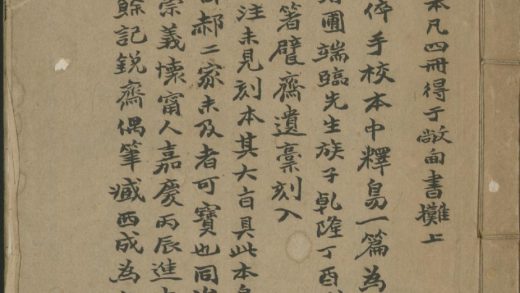 本凡四冊得于敞面書攤上
手校本中釋易一篇為
圃端臨先生族子乾隆丁酉
箸甓齋遺稾刻入
注未見刻本其大旨具此本
郝二家未及者可寶也同
崇義懷甯人嘉慶丙辰進
餘記銳齋偶筆臧西成為